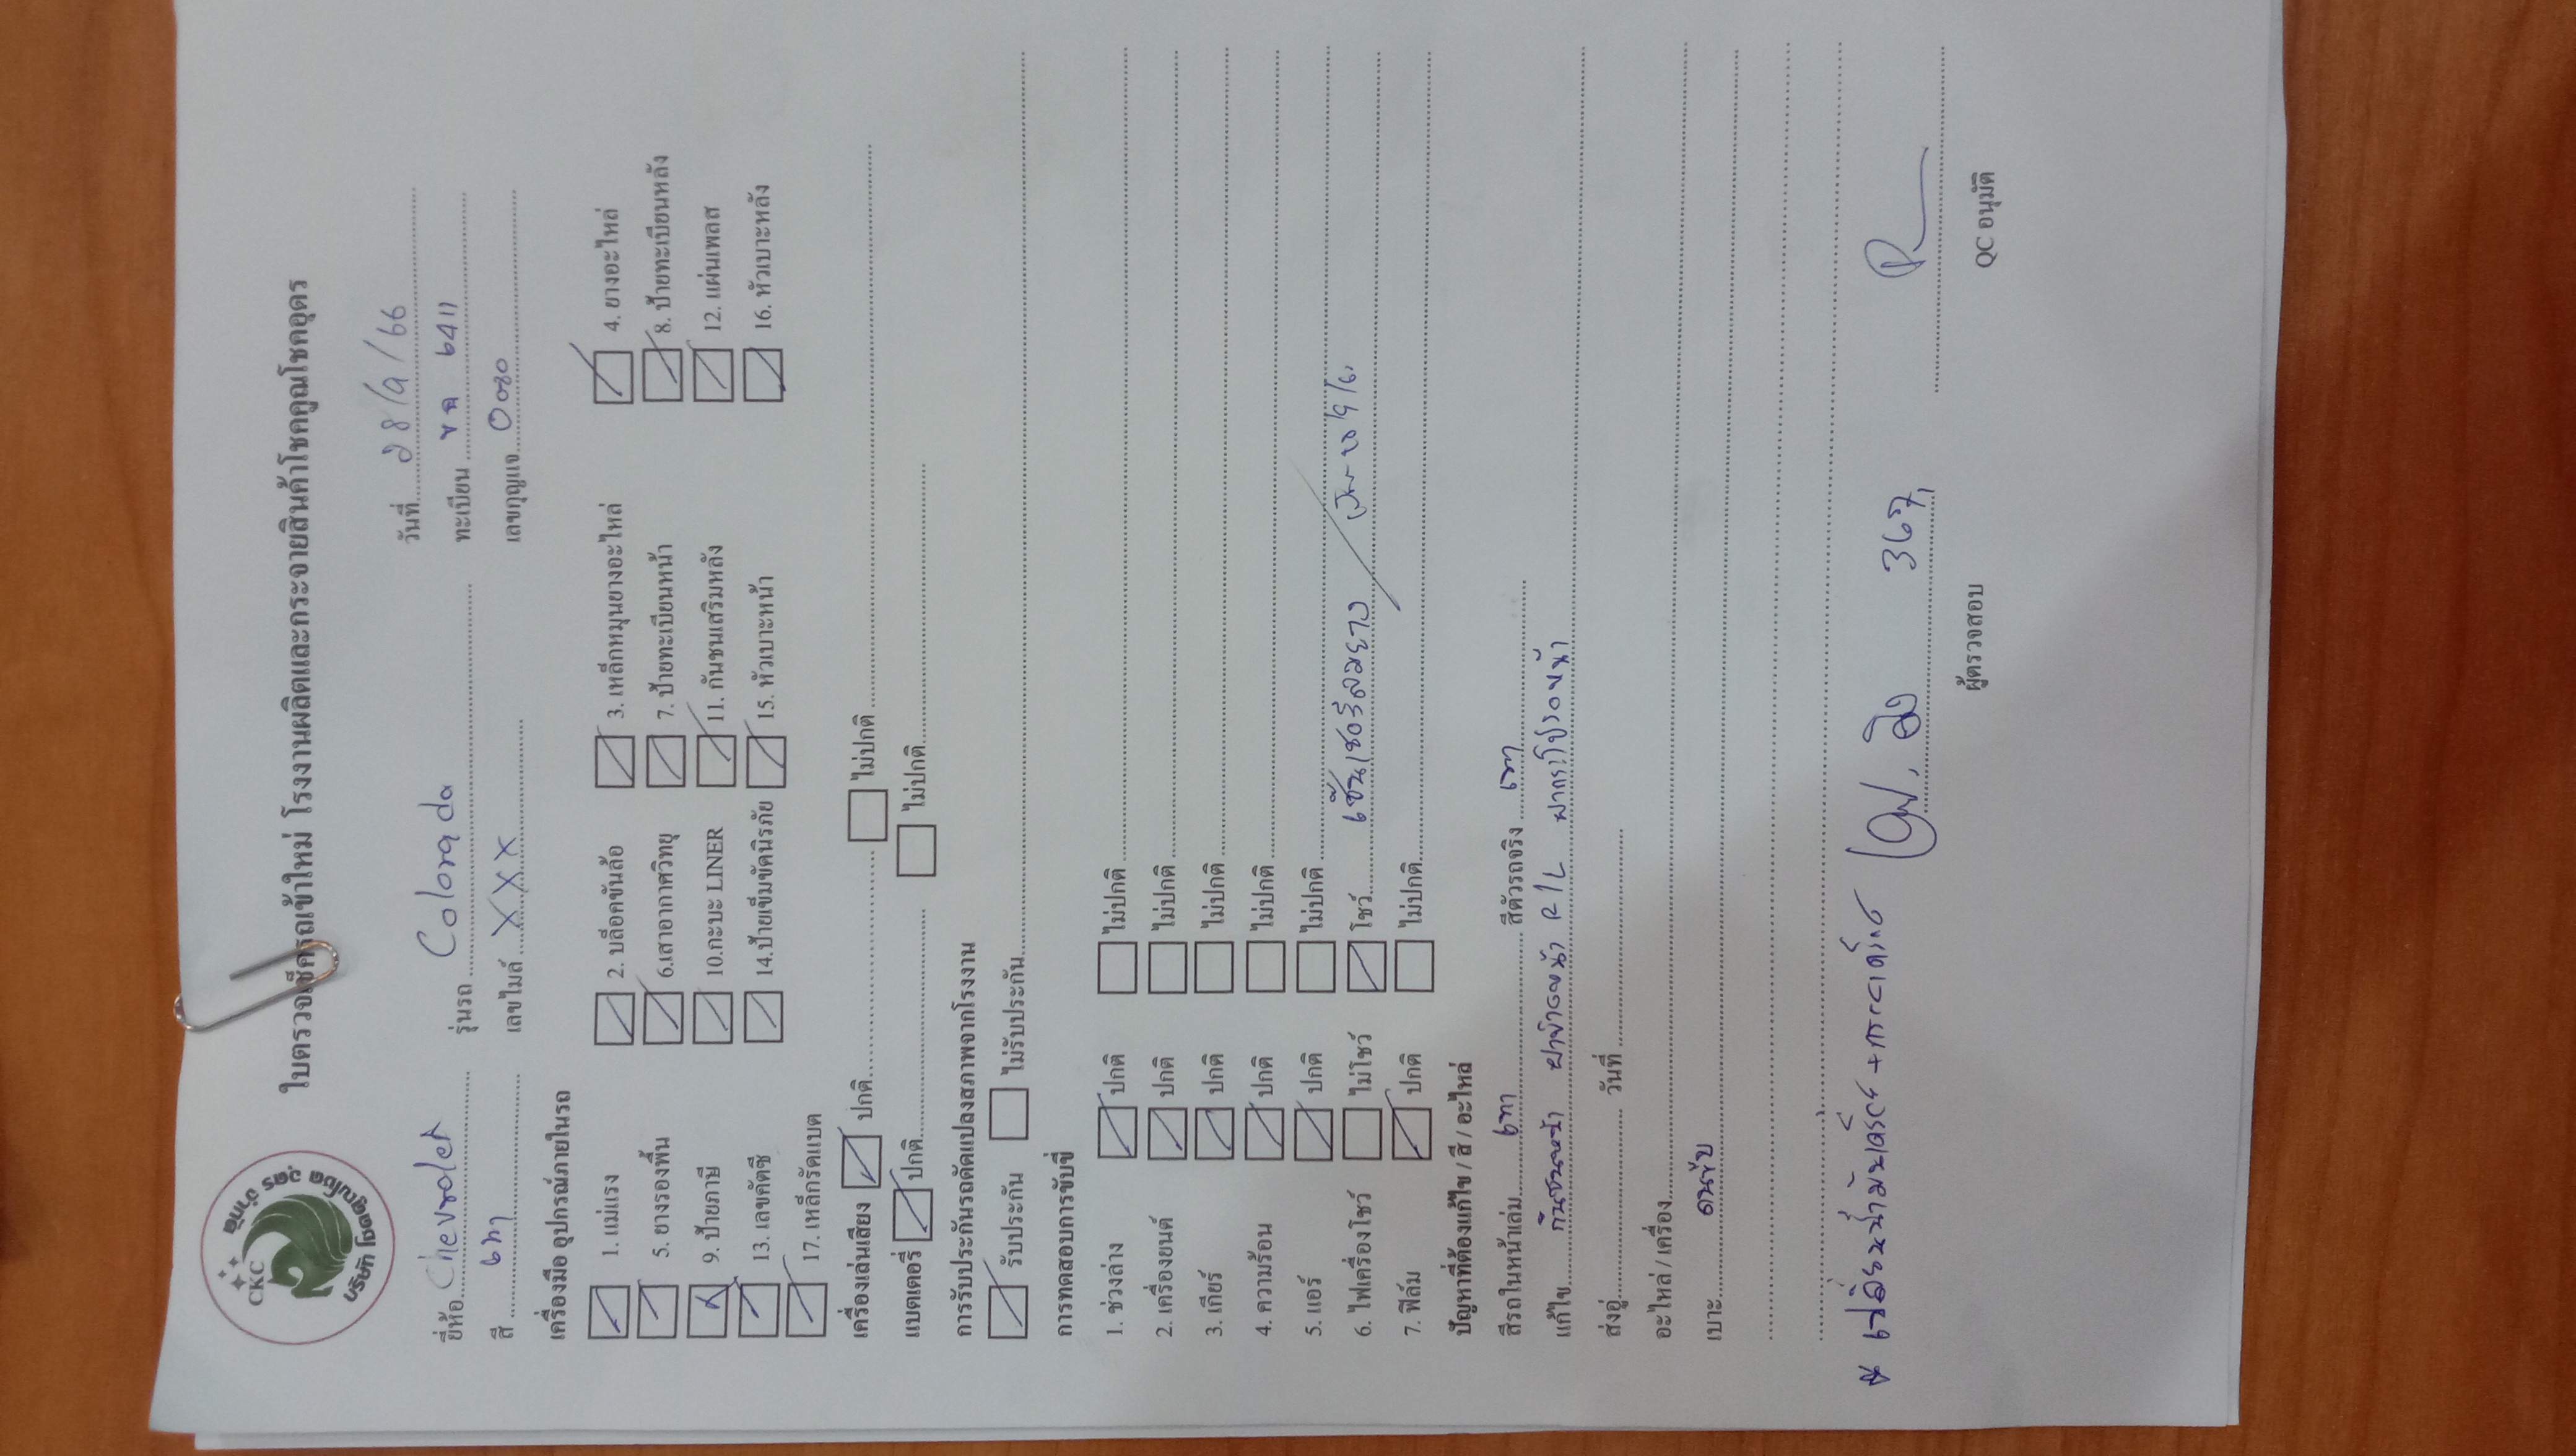 CKC
บริษัท โชคคูณโชค อุดร จำกัด
ใบตรวจเช็ครถเข้าใหม่ โรงงานผลิตและกระจายสินค้าโชคคูณโชคอุดร
วันที่ 28/9/66
ยี่ห้อ Chevrolet รุ่นรถ Colorado ทะเบียน
สี เทา เลขไมล์ XXX เลขกุญแจ
เครื่องมือ อุปกรณ์ภายในรถ
1. แม่แรง 2. บล็อคขันล้อ 3. เหล็กหมุนยางอะไหล่ 4. ยางอะไหล่
5. ยางรองพื้น 6.เสาอากาศวิทยุ 7. ป้ายทะเบียนหน้า 8. ป้ายทะเบียนหลัง
9. ป้ายภาษี 10.กะบะ LINER 11. กันชนเสริมหลัง 12. แผ่นเพลส
13. เลขคัตซี 14.ป้ายเข็มขัดนิรภัย 15. หัวเบาะหน้า 16. หัวเบาะหลัง
17. เหล็กรัดแบต
เครื่องเล่นเสียง ปกติ ไม่ปกติ
แบตเตอรี่ ปกติ ไม่ปกติ
การรับประกันรถดัดแปลงสภาพจากโรงงาน
รับประกัน ไม่รับประกัน
การทดสอบการขับขี่
1. ช่วงล่าง ปกติ ไม่ปกติ
2. เครื่องยนต์ ปกติ ไม่ปกติ
3. เกียร์ ปกติ ไม่ปกติ
4. ความร้อน ปกติ ไม่ปกติ
5. แอร์ ปกติ ไม่ปกติ
6. ไฟเครื่องโชว์ ไม่โชว์ โชว์ เซ็นเซอร์ลมยาง
7. ฟิล์ม ปกติ ไม่ปกติ
ปัญหาที่ต้องแก้ไข / สี / อะไหล่
สีรถในหน้าเล่ม เทา สีตัวรถจริง เทา
แก้ไข กันชนหน้า ฝาข้างหน้า R/L ฝากระโปรงหน้า
ส่งอู่ วันที่
อะไหล่ / เครื่อง
เบาะ คนขับ
เปลี่ยนน้ำมันเครื่อง +
ผู้ตรวจสอบ QC อนุมัติ